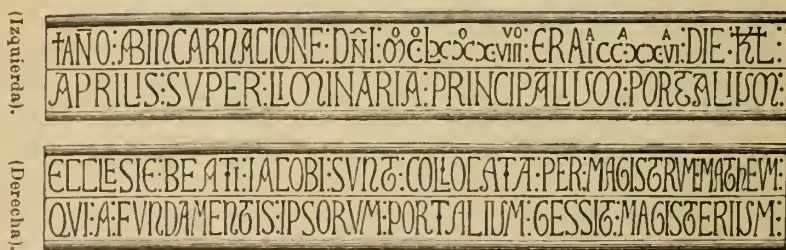 (Izquierda).
†AÑO:ABINCARNACIONE:DÑI:M°C°LXXXVIII:ERA ICCXXVI:DIE:KL:
APRILIS:SVPER:LIMINARIA:PRINCIPALIUM:PORTALIUM:
(Derecha).
ECCLESIE:BEATI:IACOBI:SVNT:COLLOCATA:PER:MAGISTRVM:MATHEVM:
QVI:A:FVNDAMENTIS:IPSORVM:PORTALIUM:GESSIT:MAGISTERIUM: